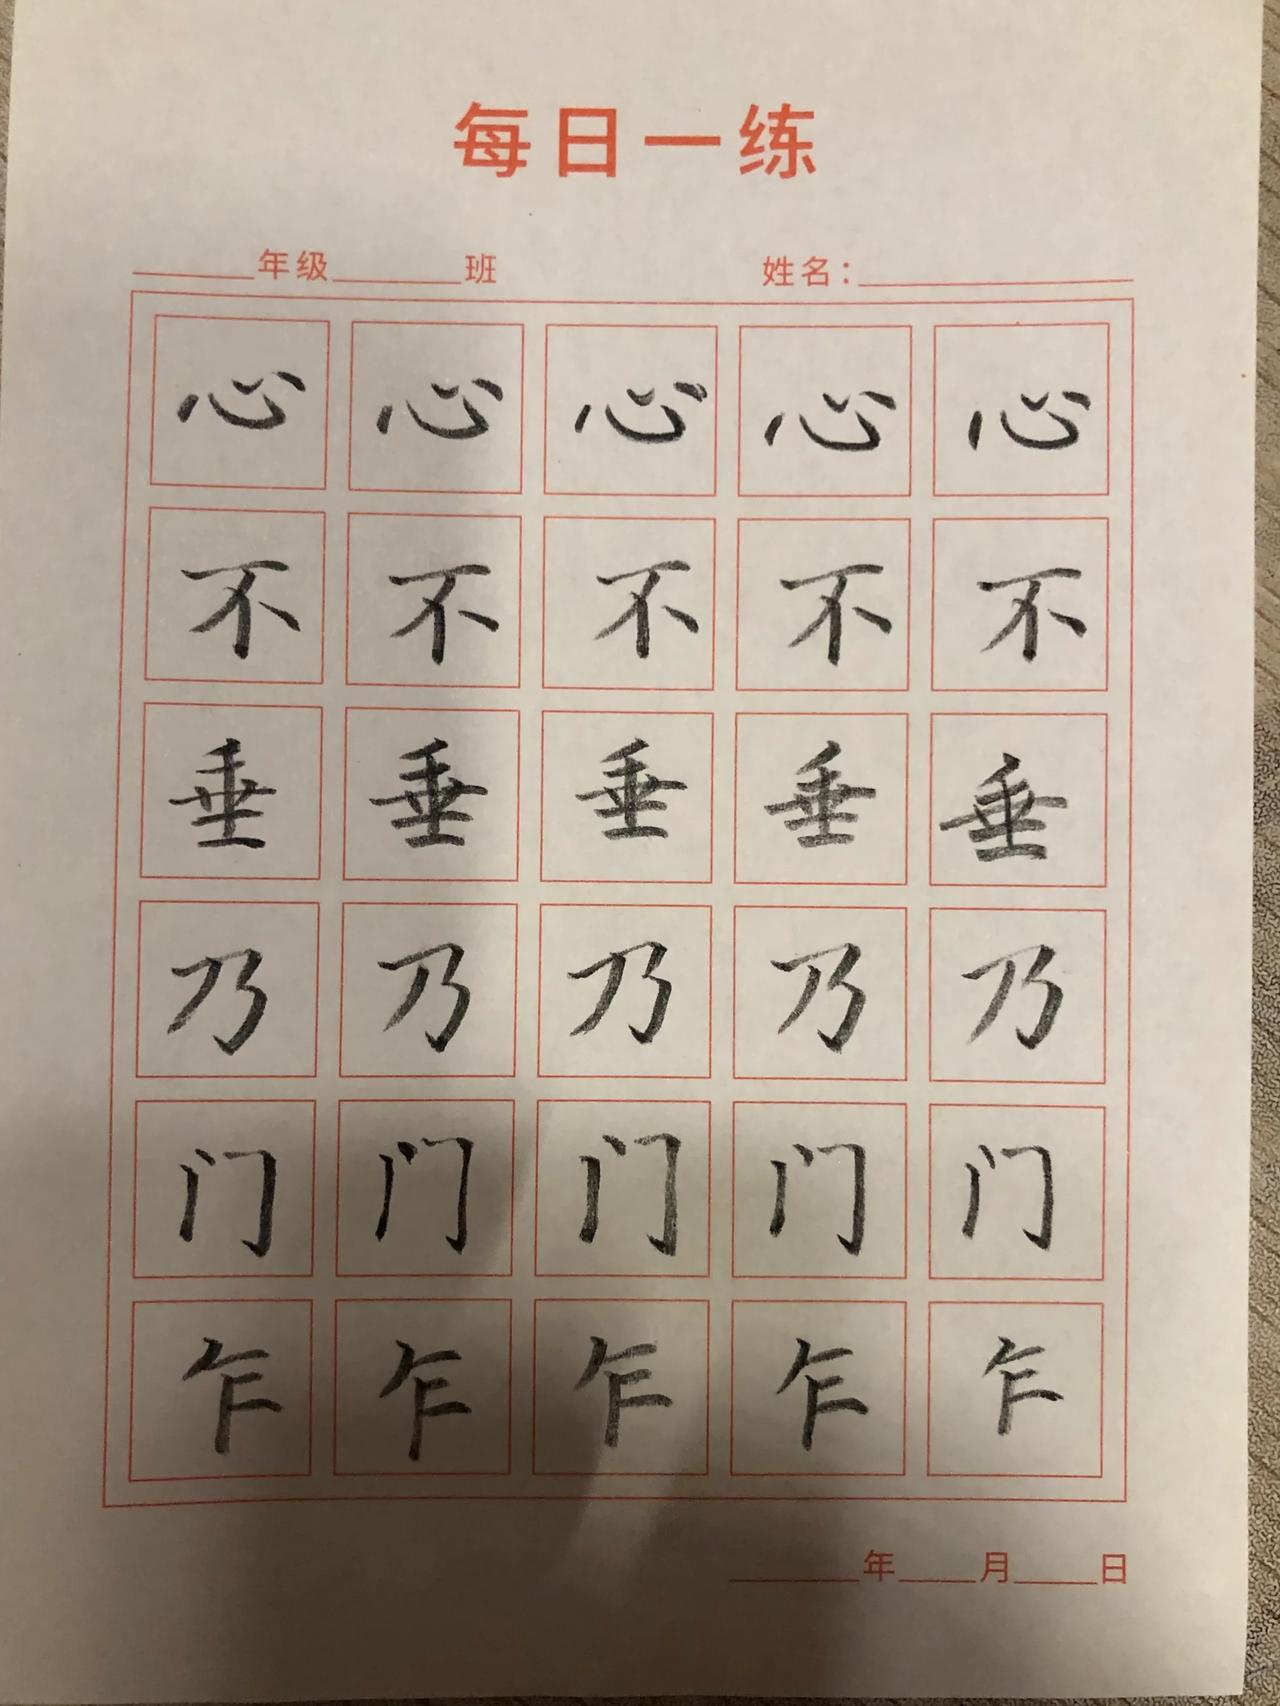 每日一练
____年级____班 姓名：________
心 心 心 心 心
不 不 不 不 不
垂 垂 垂 垂 垂
乃 乃 乃 乃 乃
门 门 门 门 门
乍 乍 乍 乍 乍
____年___月___日